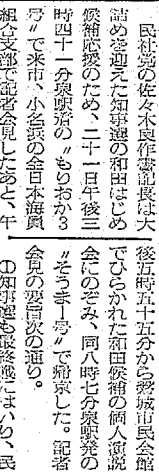 民社党の佐々木良作書記長は大
詰めを迎えた知事選の和田はじめ
候補応援のため、二十一日午後三
時四十一分泉駅着の〝もりおか3
号〟で来市、小名浜の全日本海員
組合支部で記者会見したあと、午
後五時五十五分から磐城市民会館
でひらかれた和田候補の個人演説
会にのぞみ、同八時七分泉駅発の
〝そうま1号〟で帰京した。記者
会見の要旨次の通り。
①知事選も最終戦にはいり、民